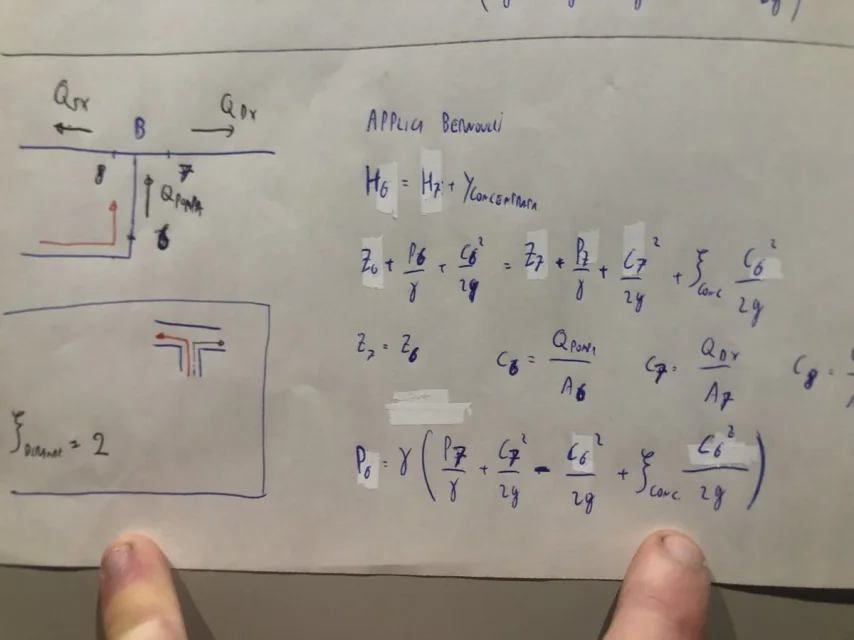 Q_SX
Q_DX
B
8
7
Q_POMPA
6
ξ = 2
APPLICA BERNOULLI
H_6 = H_7 + Y_CONCENTRATA
Z_6 + P_6/γ + C_6²/2g = Z_7 + P_7/γ + C_7²/2g + ξ_CONC C_6²/2g
Z_7 = Z_6
C_6 = Q_POMPA/A_6
C_7 = Q_DX/A_7
C_8 =
P_6 = γ ( P_7/γ + C_7²/2g - C_6²/2g + ξ_CONC. C_6²/2g )